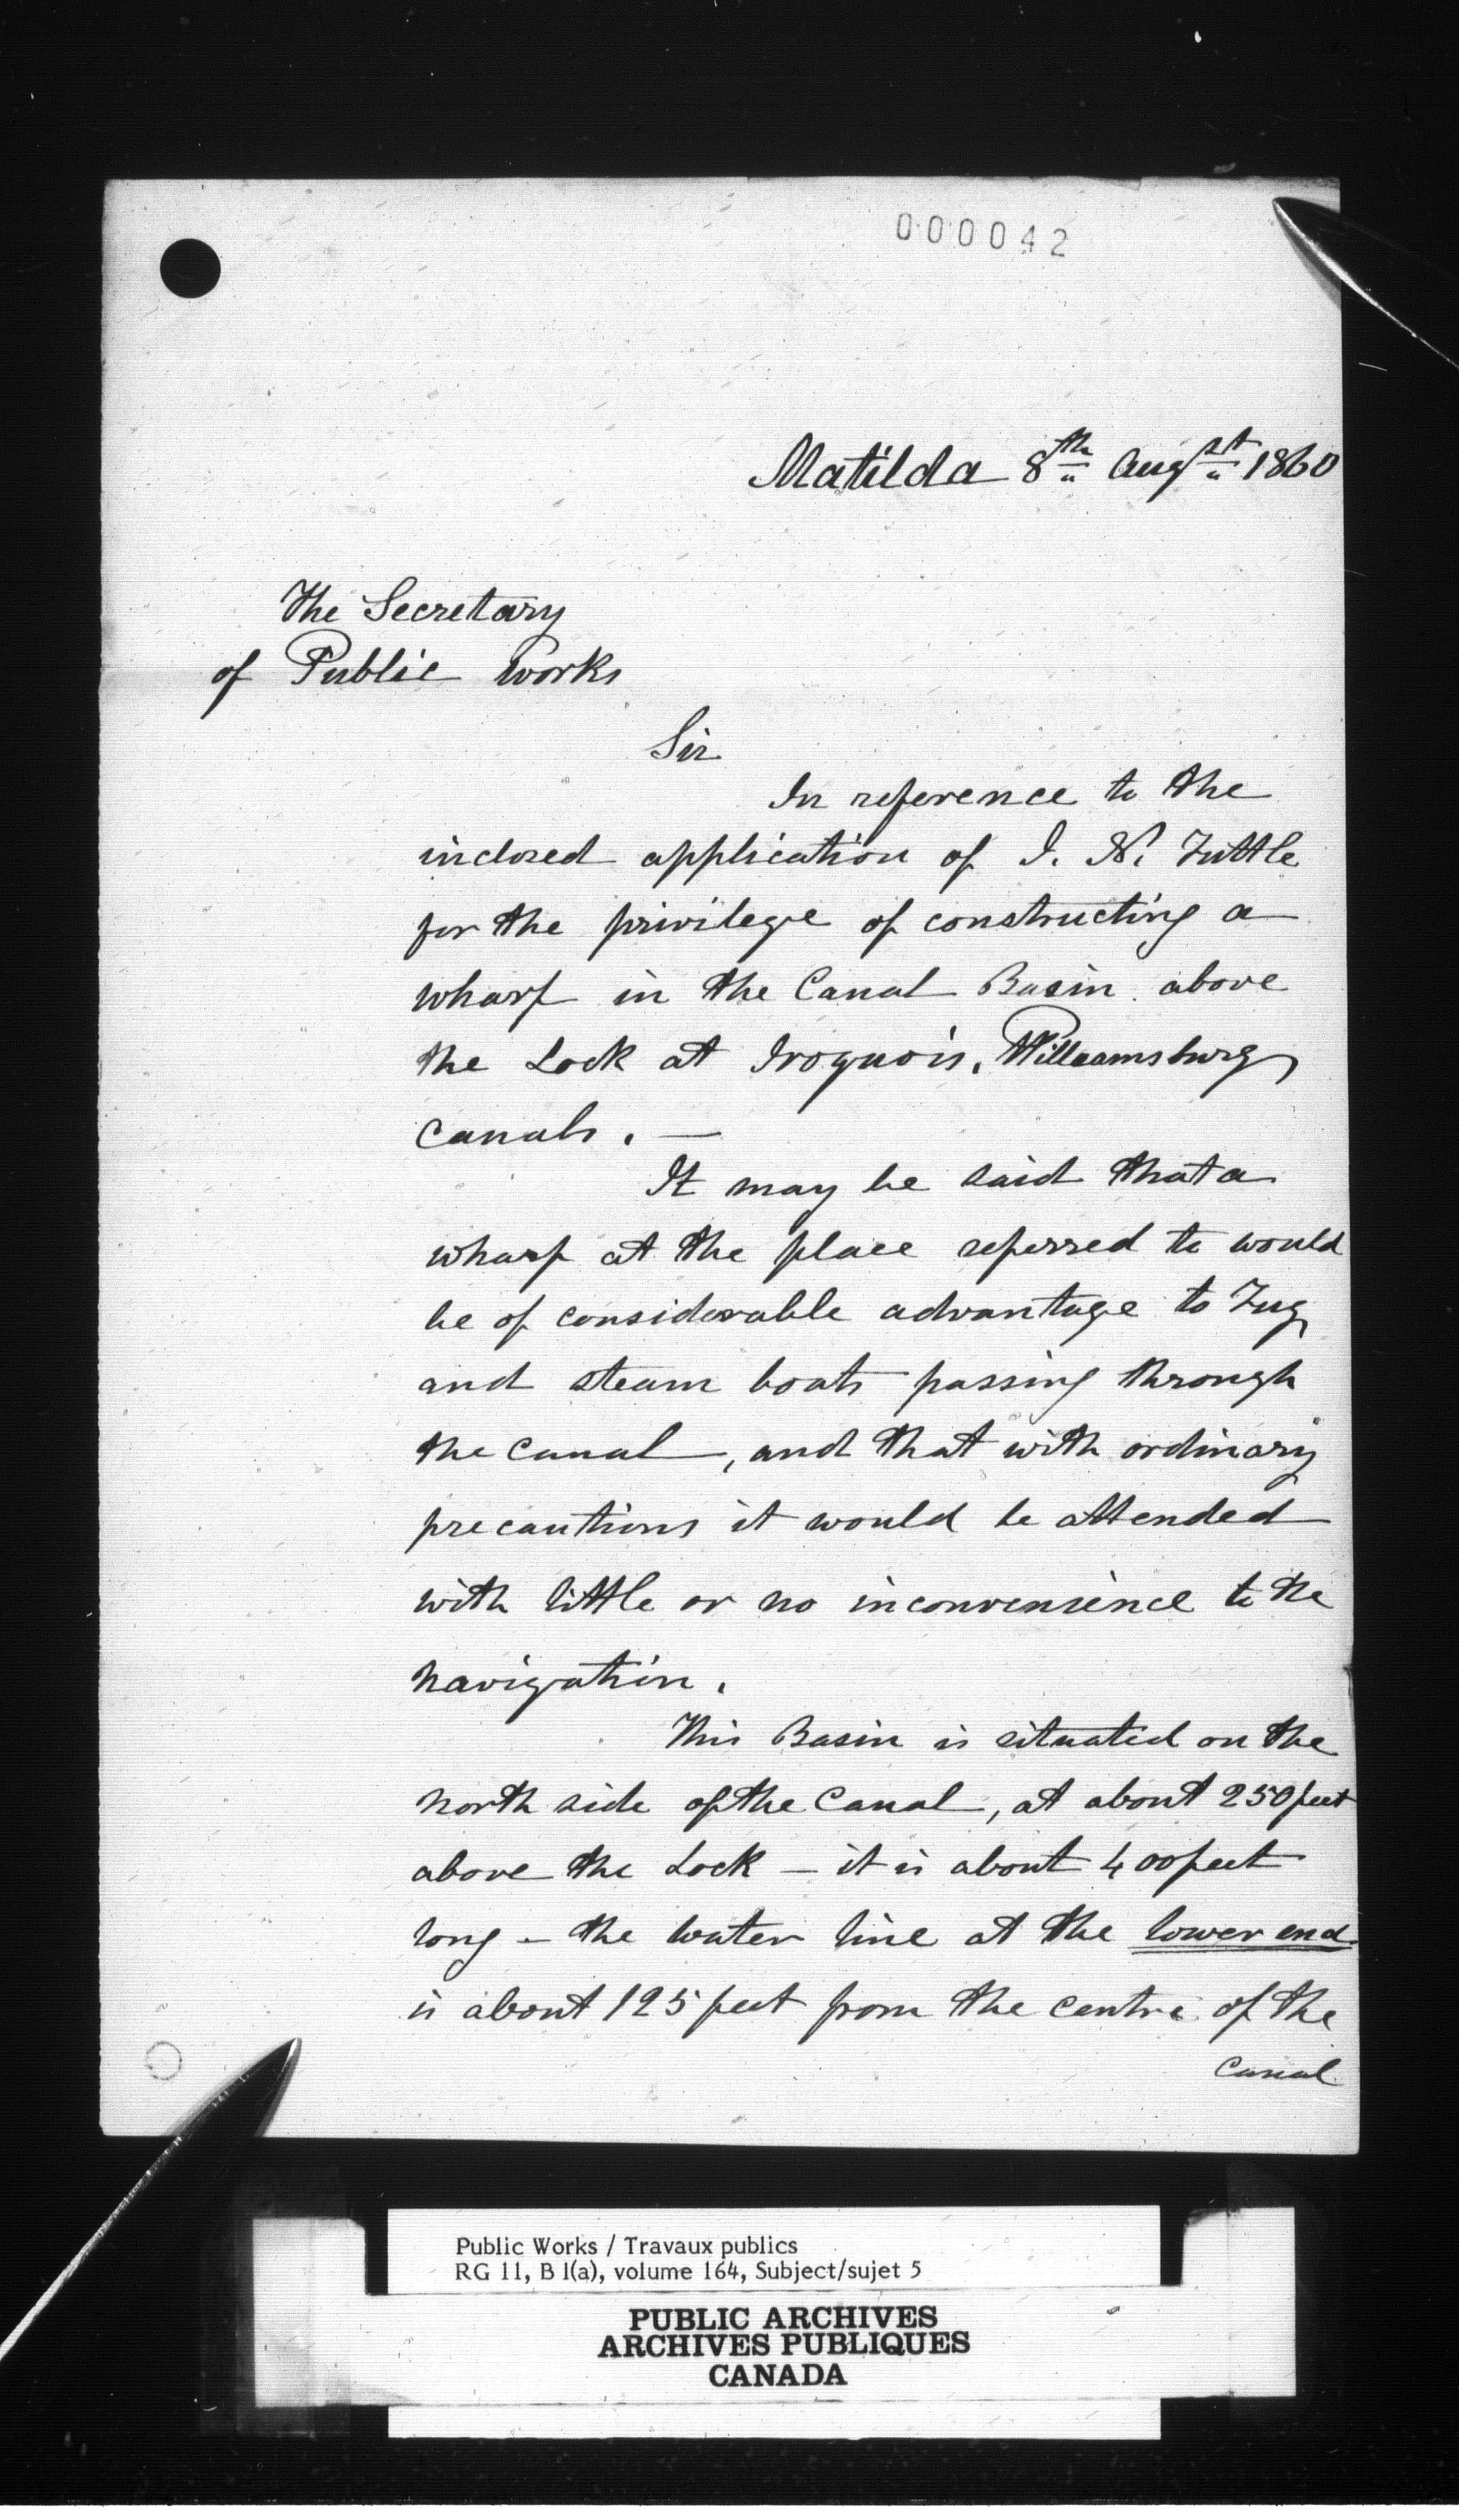 000042
Matilda 8th Augst 1860
The Secretary
of Public Works
Sir
In reference to the
inclosed application of I. N. Tuttle
for the privilege of constructing a
wharf in the Canal Basin above
the Lock at Iroquois, Williamsburg
Canals. —
It may be said that a
wharf at the place referred to would
be of considerable advantage to Tug
and steam boats passing through
the Canal, and that with ordinary
precautions it would be attended
with little or no inconvenience to the
navigation.
This Basin is situated on the
north side of the Canal, at about 250 feet
above the Lock – it is about 400 feet
long – the water line at the lower end
is about 125 feet from the centre of the
Canal
Public Works / Travaux publics
RG 11, B 1(a), volume 164, Subject/sujet 5
PUBLIC ARCHIVES
ARCHIVES PUBLIQUES
CANADA